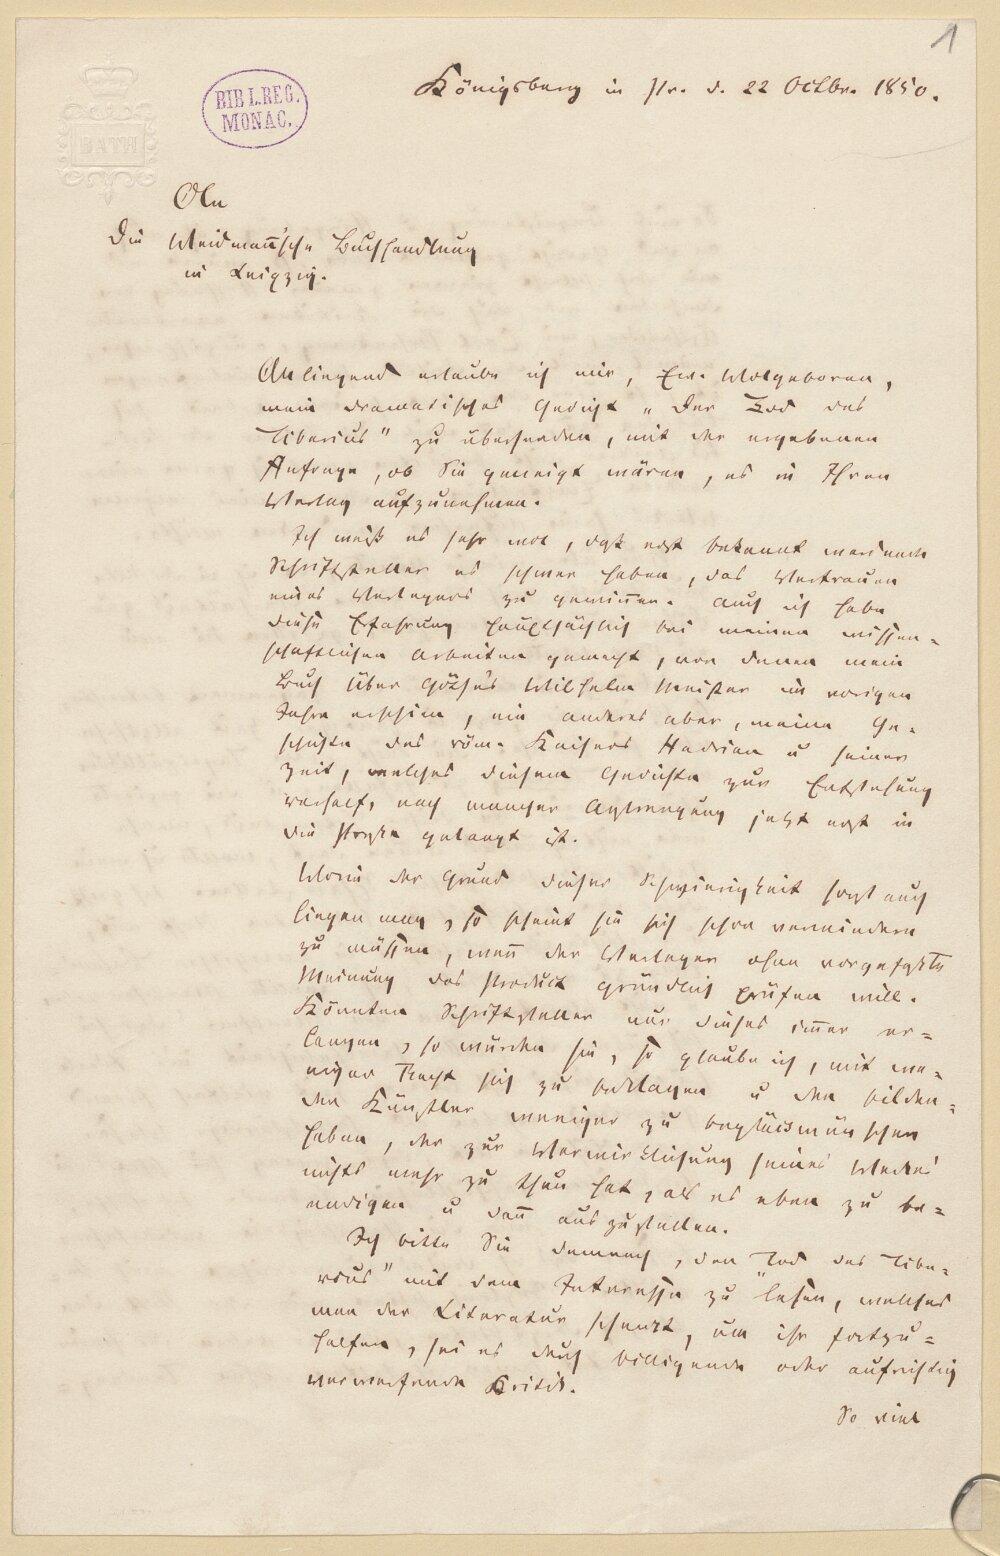 1
BIBL.REG.
MONAC.
BATH
Königsberg in Pr. d. 22 Octbr. 1850.
An
Die Weidmañ'sche Buchhandlung
in Leipzig.
Anliegend erlaube ich mir, Ew. Wolgeboren,
mein dramatisches Gedicht „Der Tod des
Tiberius" zu übersenden, mit der ergebenen
Anfrage, ob Sie geneigt wären, es in Ihren
Verlag aufzunehmen.
Ich weiß es sehr wol, daß erst bekannt werdende
Schriftsteller es schwer haben, das Vertrauen
eines Verlegers zu gewiñen. Auch ich habe
diese Erfahrung hauptsächlich bei meinen wissen=
schaftlichen Arbeiten gemacht, von denen mein
Buch über Göthe's Wilhelm Meister im vorigen
Jahre erschien, ein anderes aber, meine Ge=
schichte des röm. Kaisers Hadrian u seiner
Zeit, welches diesem Gedichte zur Entstehung
verhalf, nach mancher Anstrengung jetzt erst in
die Presse gelangt ist.
Worin der Grund dieser Schwierigkeit sonst auch
liegen mag, so scheint sie sich schon vermindern
zu müssen, weñ der Verleger ohne vorgefaßte
Meinung das Product gründlich prüfen will.
Könnten Schriftsteller nur dieses im̄er er=
langen, so würden sie, so glaube ich, mit we=
niger Recht sich zu beklagen u den bilden=
den Künstler weniger zu beglückwünschen
haben, der zur Verwirklichung seines Werkes
nichts mehr zu thun hat, als es eben zu be=
endigen u dañ auszustellen.
Ich bitte Sie demnach, den „Tod des Tibe=
rius" mit dem Interesse zu lesen, welches
man der Literatur schenkt, um ihr fortzu=
helfen, sei es durch billigende oder aufrichtig
verwerfende Kritik.
So viel